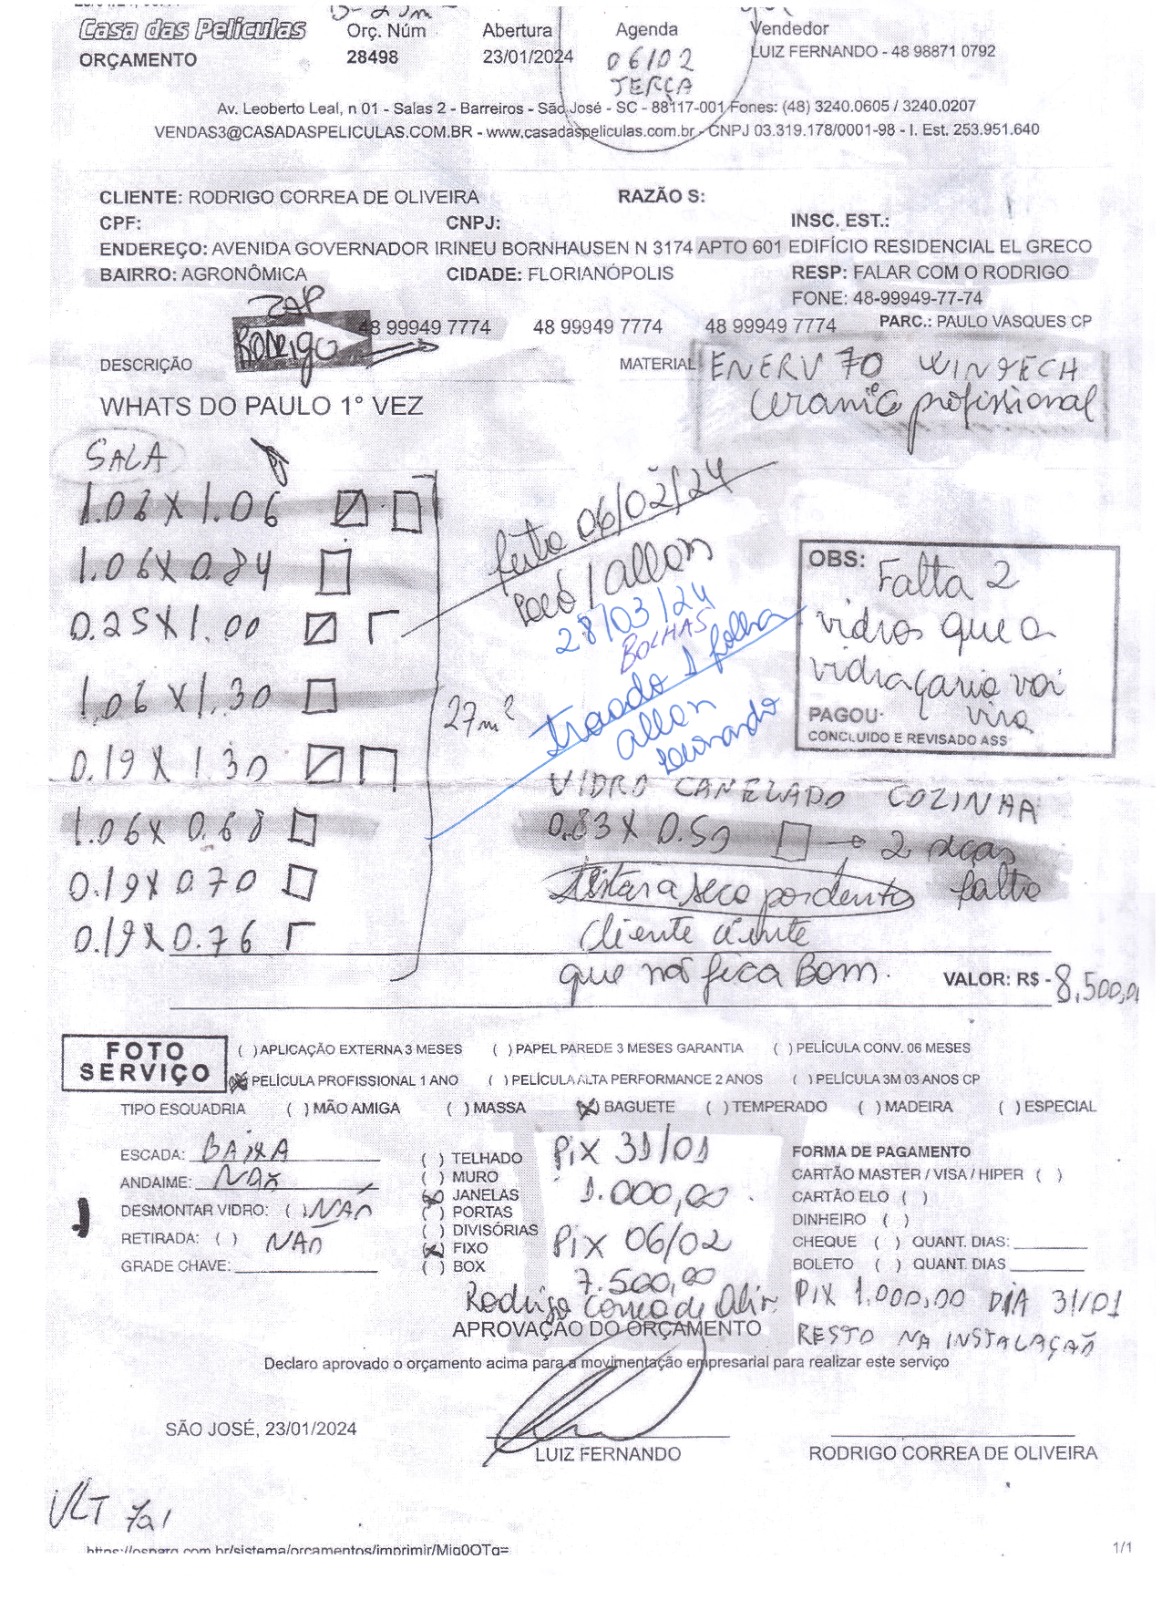 Casa das Películas
ORÇAMENTO
Orç. Núm
28498
Abertura
23/01/2024
Agenda
06/02
TERÇA
Vendedor
LUIZ FERNANDO - 48 98871 0792
Av. Leoberto Leal, n 01 - Salas 2 - Barreiros - São José - SC - 88117-001 Fones: (48) 3240.0605 / 3240.0207
VENDAS3@CASADASPELICULAS.COM.BR - www.casadaspeliculas.com.br - CNPJ 03.319.178/0001-98 - I. Est. 253.951.640
CLIENTE: RODRIGO CORREA DE OLIVEIRA RAZÃO S:
CPF: CNPJ: INSC. EST.:
ENDEREÇO: AVENIDA GOVERNADOR IRINEU BORNHAUSEN N 3174 APTO 601 EDIFÍCIO RESIDENCIAL EL GRECO
BAIRRO: AGRONÔMICA CIDADE: FLORIANÓPOLIS RESP: FALAR COM O RODRIGO
FONE: 48-99949-77-74
ZAP
RODRIGO
48 99949 7774 48 99949 7774 48 99949 7774 PARC.: PAULO VASQUES CP
DESCRIÇÃO
MATERIAL ENERV 70 WINTECH
Ceramic profissional
WHATS DO PAULO 1° VEZ
SALA
1.06 X 1.06
1.06 X 0.84
0.25 X 1.00
1.06 X 1.30
0.19 X 1.30
1.06 X 0.68
0.19 X 0.70
0.19 X 0.76
27m²
feito 06/02/24
/ allan
28/03/24
BOLHAS
trocado 1 folha
allan
Leonardo
OBS: Falta 2
vidros que a
vidraçaria vai
vira
PAGOU:
CONCLUIDO E REVISADO ASS
VIDRO CANELADO COZINHA
0.83 X 0.59 → 2 peças
falta
a seco por dentro
Cliente ciente
que não fica Bom.
VALOR: R$ - 8.500,00
FOTO
SERVIÇO
( ) APLICAÇÃO EXTERNA 3 MESES ( ) PAPEL PAREDE 3 MESES GARANTIA ( ) PELÍCULA CONV. 06 MESES
(X) PELÍCULA PROFISSIONAL 1 ANO ( ) PELÍCULA ALTA PERFORMANCE 2 ANOS ( ) PELÍCULA 3M 03 ANOS CP
TIPO ESQUADRIA ( ) MÃO AMIGA ( ) MASSA (X) BAGUETE ( ) TEMPERADO ( ) MADEIRA ( ) ESPECIAL
ESCADA: BAIXA
ANDAIME: NÃO
DESMONTAR VIDRO: ( ) NÃO
RETIRADA: ( ) NÃO
GRADE CHAVE:
( ) TELHADO
( ) MURO
(X) JANELAS
( ) PORTAS
( ) DIVISÓRIAS
(X) FIXO
( ) BOX
PIX 31/01
1.000,00
PIX 06/02
7.500,00
FORMA DE PAGAMENTO
CARTÃO MASTER / VISA / HIPER ( )
CARTÃO ELO ( )
DINHEIRO ( )
CHEQUE ( ) QUANT. DIAS:
BOLETO ( ) QUANT. DIAS
PIX 1.000,00 DIA 31/01
RESTO NA INSTALAÇÃO
Rodrigo Correa de Oliv.
APROVAÇÃO DO ORÇAMENTO
Declaro aprovado o orçamento acima para a movimentação empresarial para realizar este serviço
SÃO JOSÉ, 23/01/2024
LUIZ FERNANDO
RODRIGO CORREA DE OLIVEIRA
VLT 70
https://osparq.com.br/sistema/orcamentos/imprimir/Mjg0OTg=
1/1